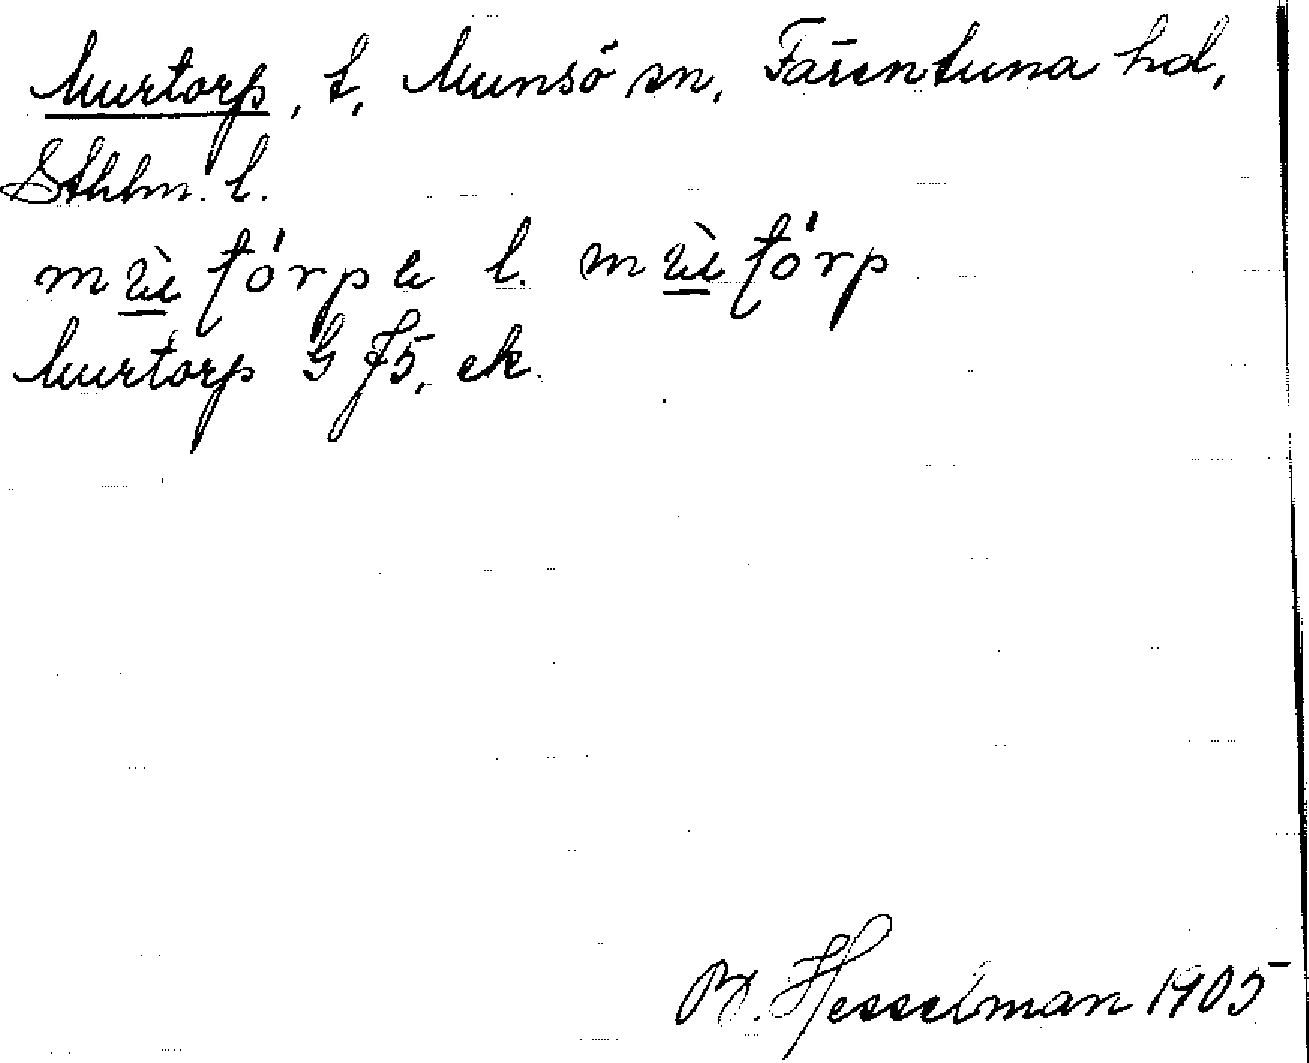 Murtorp, t, Munsö sn, Färentuna hd,
Sthlm. l.
l.
Murtorp G J5, ek.
B. Hesselman 1905